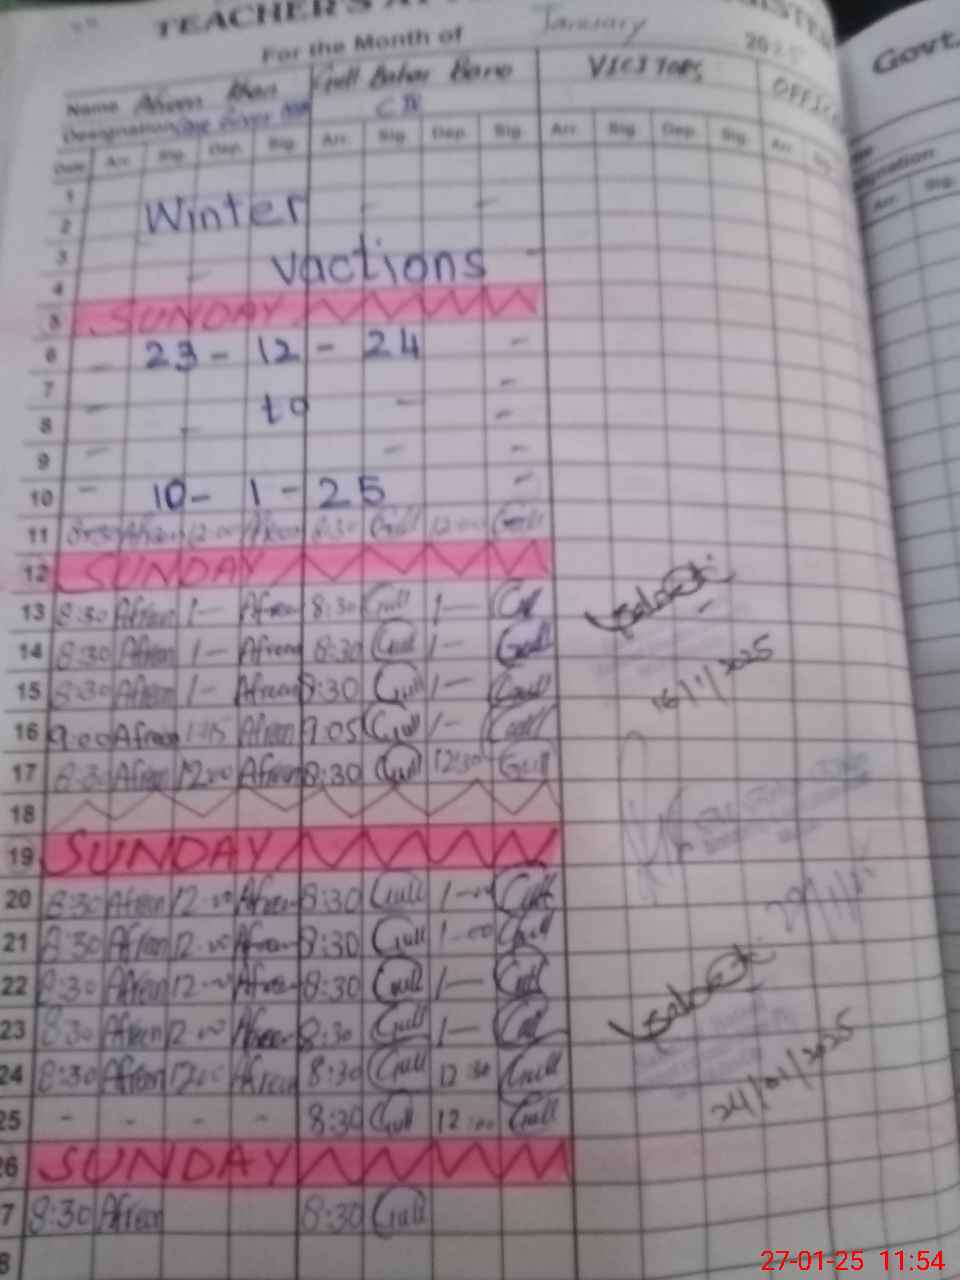 TEACHER'S
For the Month of January 2025
Govt.
Name Afreen Khan Gull Bahar Bano VICITORS
Designation CIV OFFIC
Date Arr. Sig. Dep. Sig. Arr. Sig. Dep. Sig. Arr. Sig. Dep. Sig. Arr. Sig.
1
2 Winter
3 vactions
4
5 SUNDAY
6 23-12-24
7
8 to
9
10 10-1-25
11 8:30 Afreen 12:00 Afreen 8:30 Gull 12:00 Gull
12 SUNDAY
13 8:30 Afreen 1— Afreen 8:30 Gull 1— Gull
14 8:30 Afreen 1— Afreen 8:30 Gull 1— Gull
15 8:30 Afreen 1— Afreen 8:30 Gull 1— Gull
16/1/2025
16 9:00 Afreen 1:15 Afreen 9:05 Gull 1— Gull
17 8:30 Afreen 12:00 Afreen 8:30 Gull 12:30 Gull
18
19 SUNDAY
20 8:30 Afreen 12:00 Afreen 8:30 Gull 1—00 Gull
21 8:30 Afreen 12:00 Afreen 8:30 Gull 1—00 Gull
22 8:30 Afreen 12:00 Afreen 8:30 Gull 1— Gull
23 8:30 Afreen 12:00 Afreen 8:30 Gull 1— Gull
24 8:30 Afreen 12:00 Afreen 8:30 Gull 12:30 Gull
24/01/2025
25 - - - - 8:30 Gull 12:00 Gull
26 SUNDAY
7 8:30 Afreen 8:30 Gull
8
27-01-25 11:54